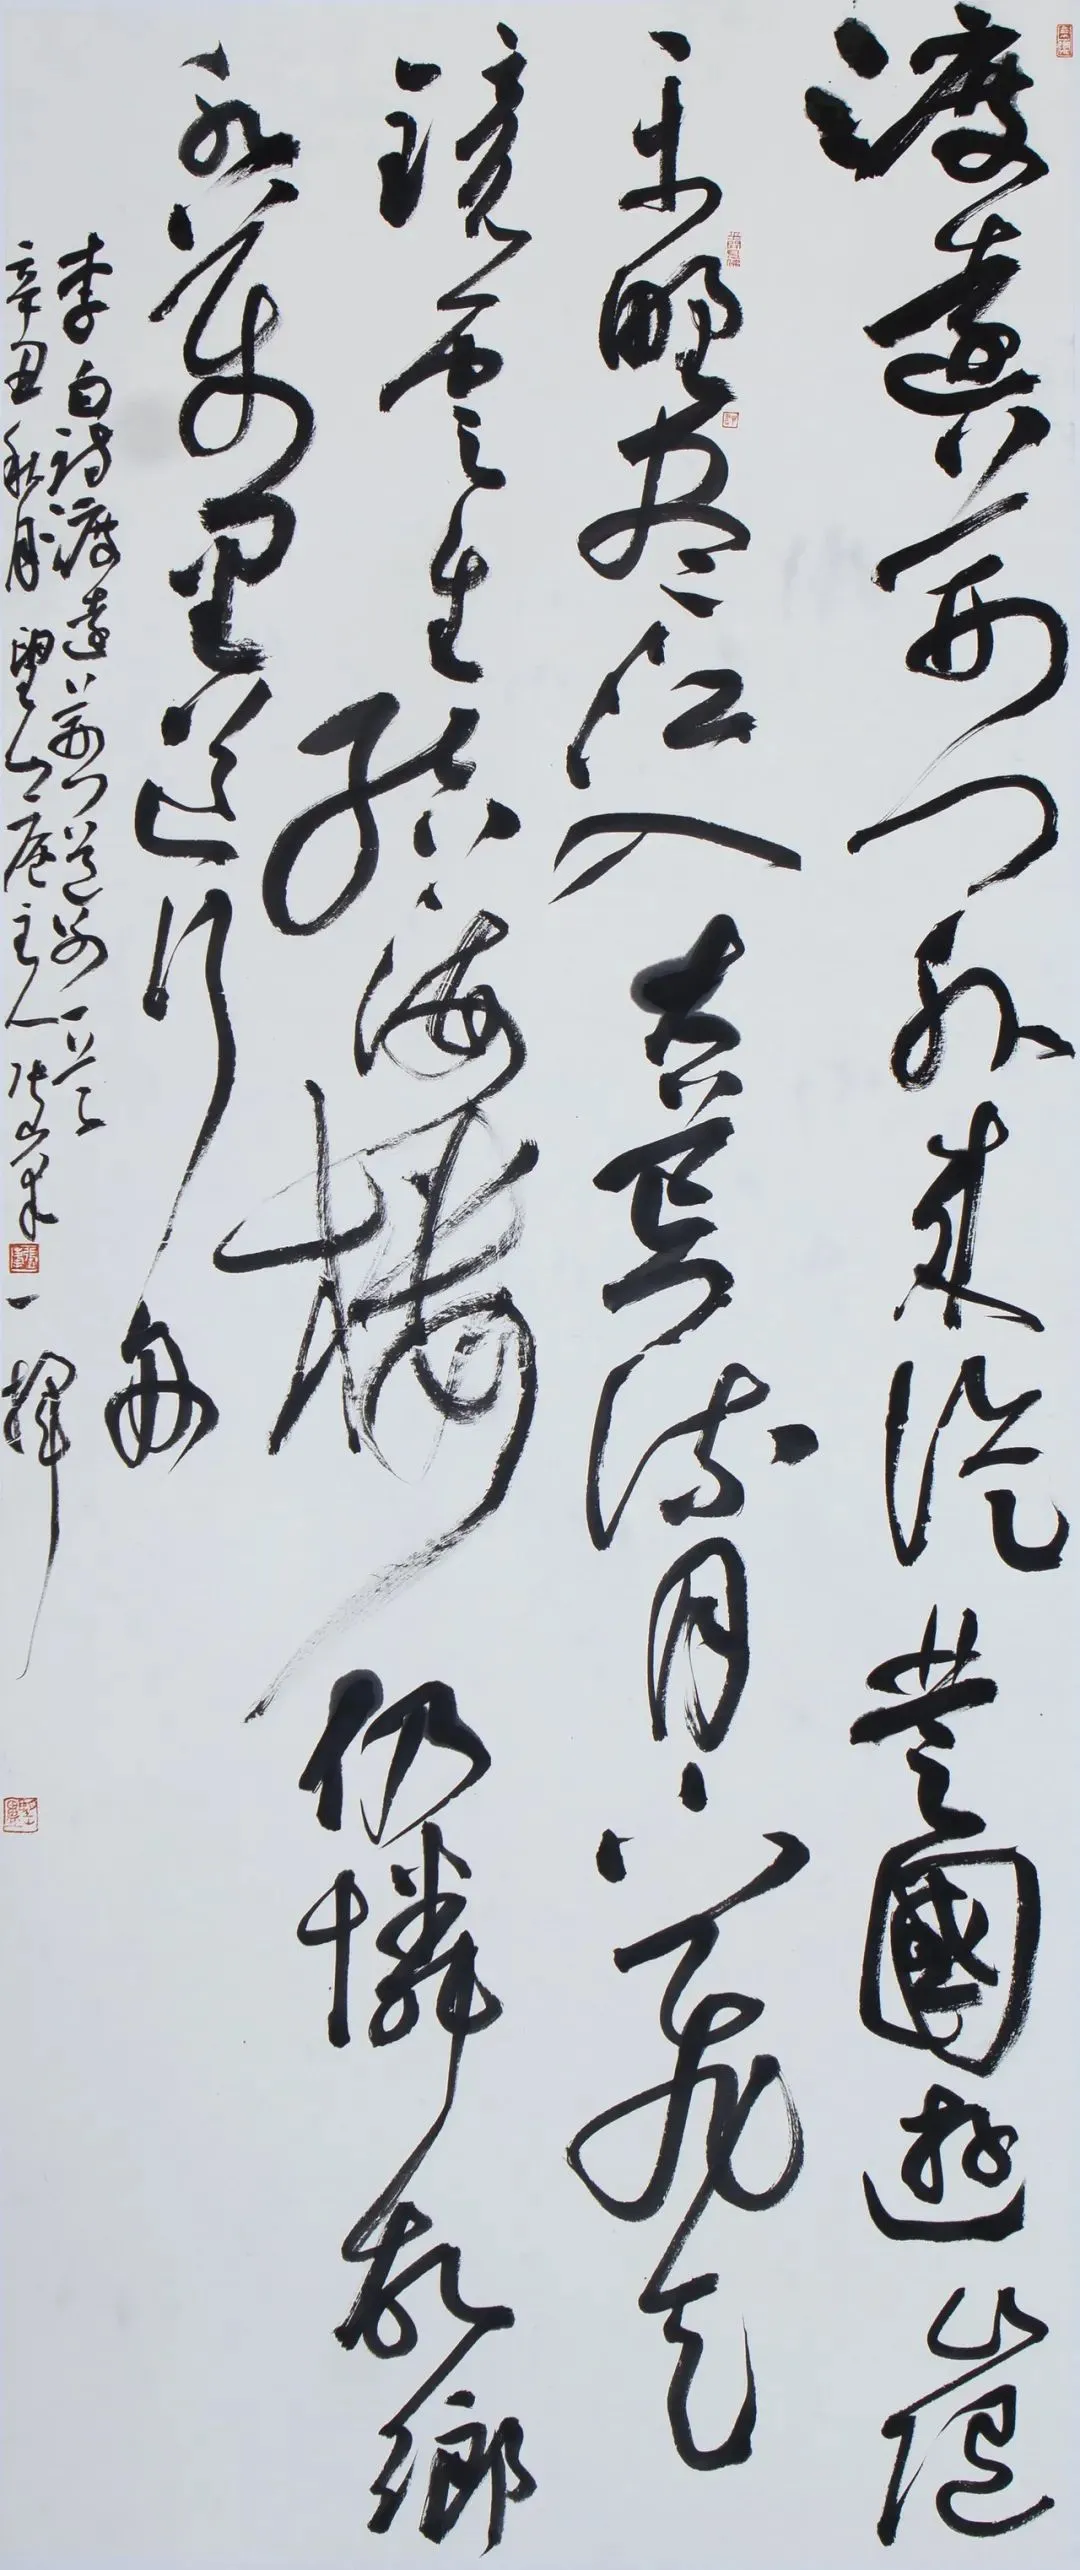 渡遠荊門外來從楚國遊山隨
平野盡江入大荒流月下飛天
鏡雲生結海樓仍憐故鄉
水萬里送行舟
李白詩渡遠荊門送別一首
辛丑秋月望山庵主人張峯一揮